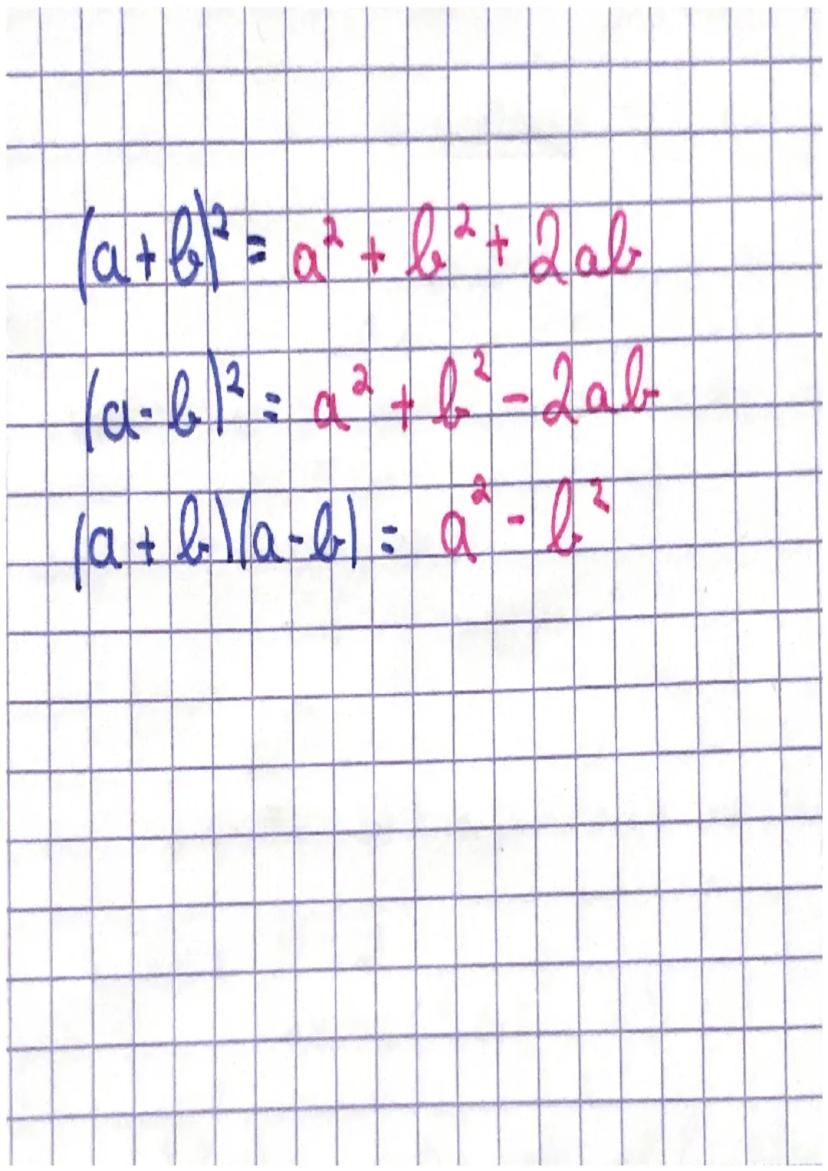 (a+b)² = a² + b² + 2ab
(a-b)² = a² + b² - 2ab
(a + b)(a-b) = a² - b²